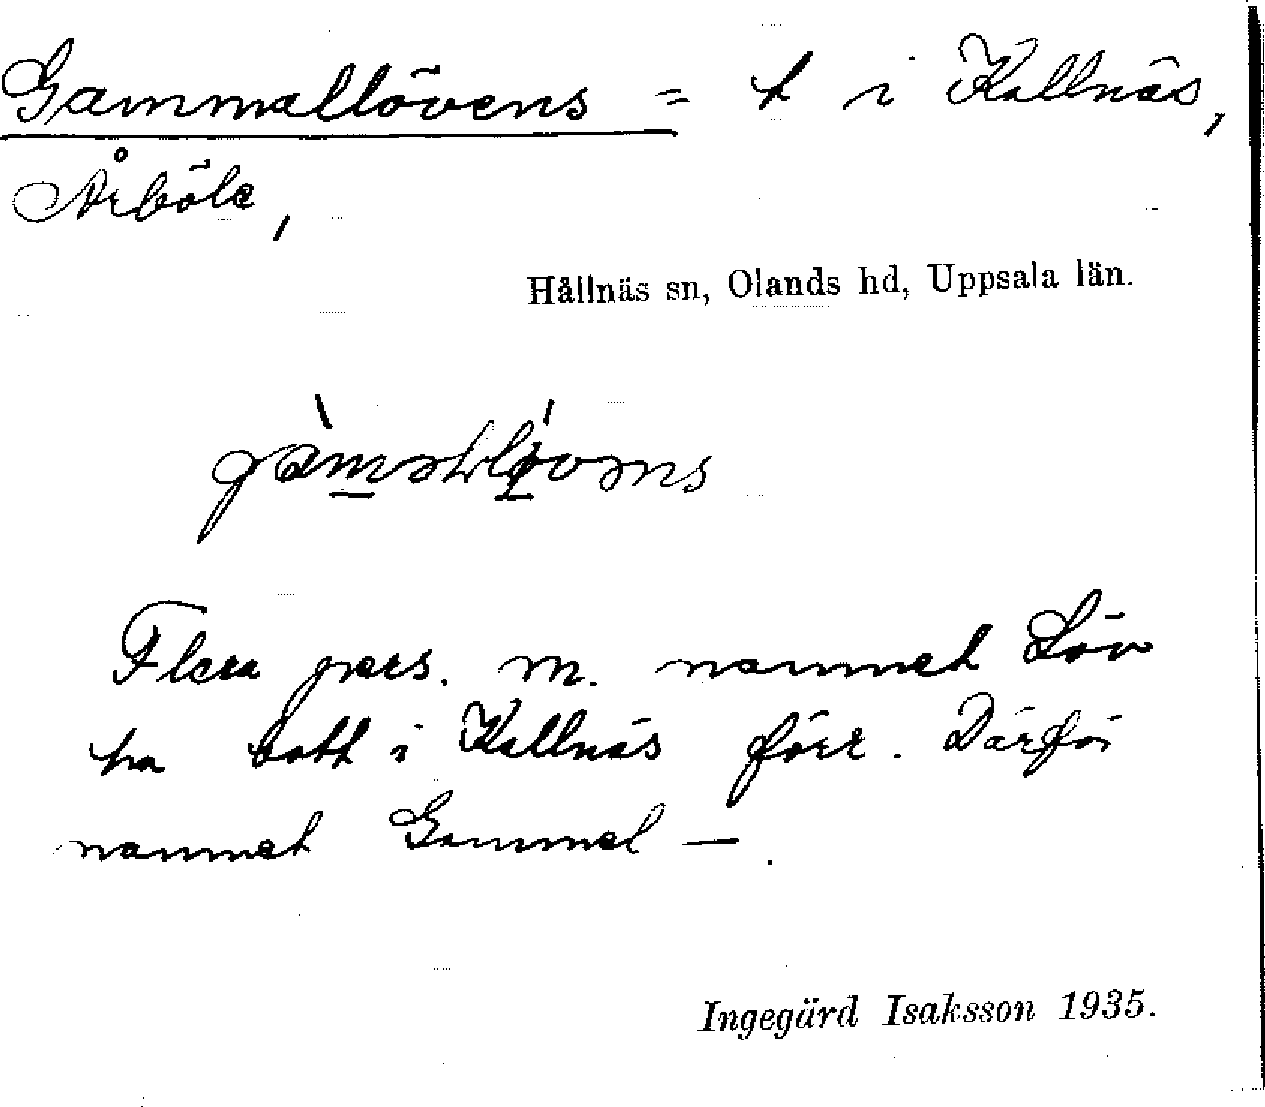 Gammallövens = t i Kallnäs,
Årböle,
Hållnäs sn, Olands hd, Uppsala län.
Flera pers. m. namnet Löv
ha bott i Kallnäs förr. Därför
namnet Gammel —.
Ingegärd Isaksson 1935.